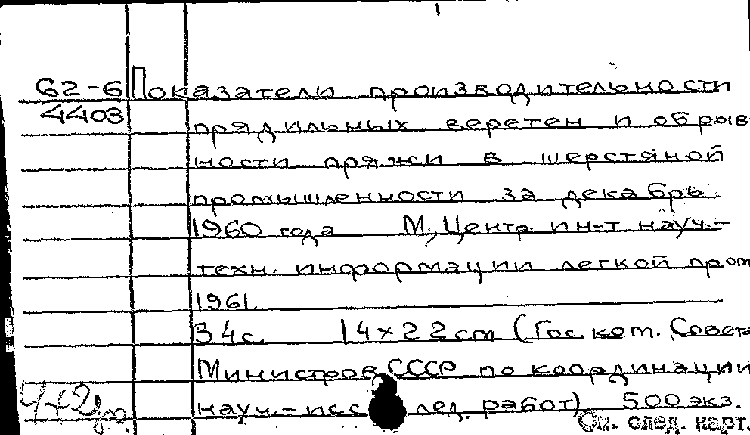 62-6 Показатели производительности
4403
прядильных веретен и обрыв
ности пряжи в шерстяной
промышленности за декабрь
1960 года М, Центр. ин-т науч.-
техн. информации легкой пром
1961.
34с. 14×22см (Гос. ком. Совета
Министров СССР по координации
науч.-исслед. работ) 500 экз.
См. след. карт.